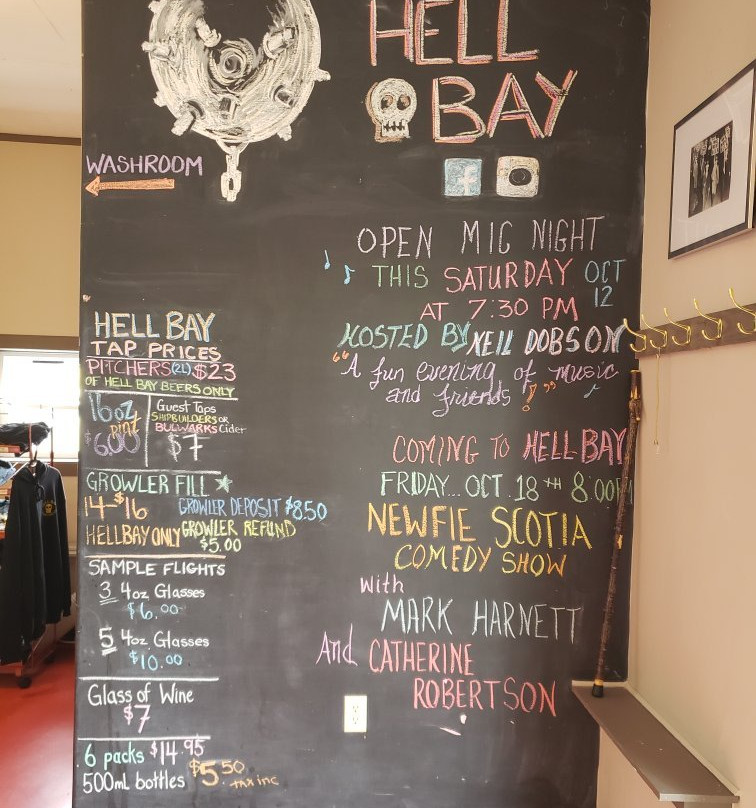 HELL
BAY
WASHROOM
f
OPEN MIC NIGHT
THIS SATURDAY OCT 12
AT 7:30 PM
HOSTED BY NEIL DOBSON
"A fun evening of music
and friends!"
COMING TO HELL BAY
FRIDAY... OCT. 18TH 8:00P
NEWFIE SCOTIA
COMEDY SHOW
with
MARK HARNETT
And CATHERINE
ROBERTSON
HELL BAY
TAP PRICES
PITCHERS (2L) $23
OF HELL BAY BEERS ONLY
16oz
pint
$6.00
Guest Taps
SHIPBUILDERS OR
BULWARKS Cider
$7
GROWLER FILL
14-$16
HELLBAY ONLY
GROWLER DEPOSIT $8.50
GROWLER REFUND
$5.00
SAMPLE FLIGHTS
3 4oz Glasses
$6.00
5 4oz Glasses
$10.00
Glass of Wine
$7
6 packs $14.95
500ml bottles $5.50
tax inc